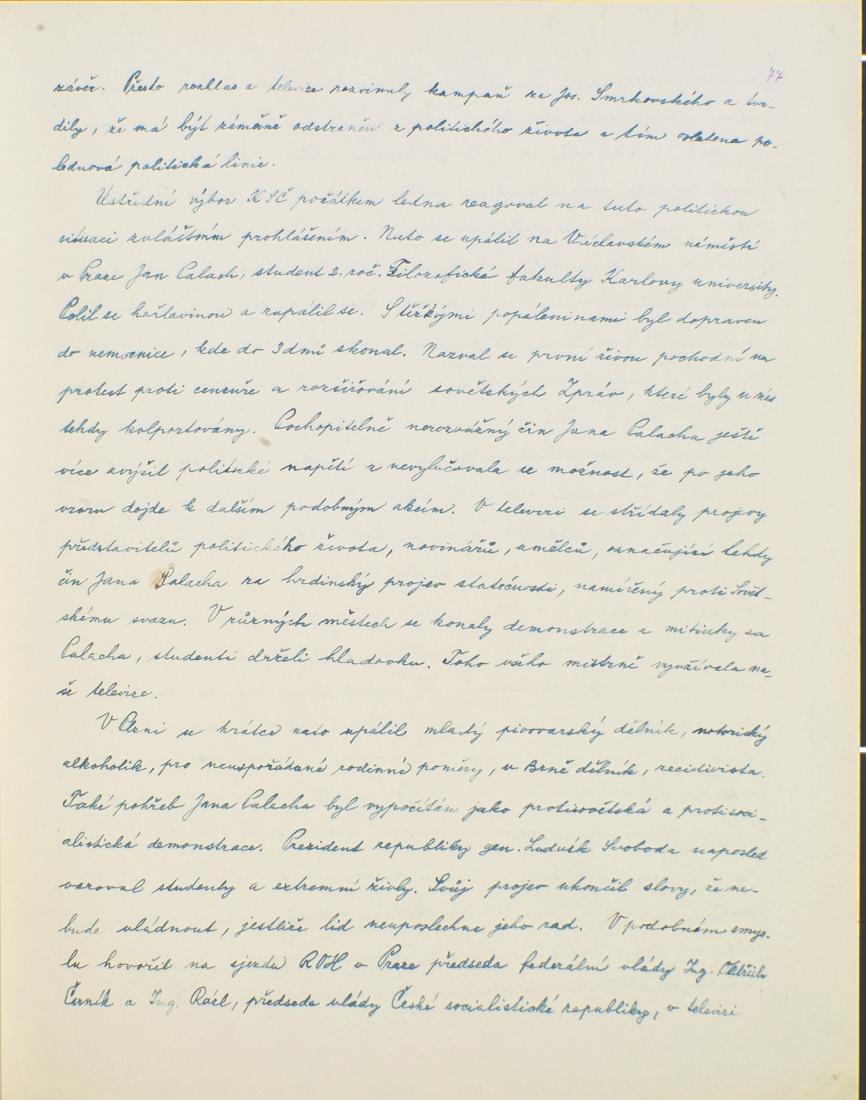 77
závěr. Přesto rozhlas a televize rozvinuly kampaň za Jos. Smrkovského a tvr-
dily, že má být záměrně odstraněn z politického života a tím oslabena po-
lednová politická linie.
Ústřední výbor KSČ počátkem ledna reagoval na tuto politickou
situaci zvláštním prohlášením. Nato se upálil na Václavském náměstí
v Praze Jan Palach, student 2. roč. Filozofické fakulty Karlovy university.
Polil se hořlavinou a zapálil se. S těžkými popáleninami byl dopraven
do nemocnice, kde do 3 dnů skonal. Nazval se první živou pochodní na
protest proti cenzuře a rozšiřování sovětských Zpráv, které byly u nás
tehdy kolportovány. Pochopitelně nerozvážný čin Jana Palacha ještě
více zvýšil politické napětí a nevylučovala se možnost, že po jeho
vzoru dojde k dalším podobným akcím. V televizi se střídaly projevy
představitelů politického života, novinářů, umělců, označující tehdy
čin Jana Palacha za hrdinský projev statečnosti, namířený proti Sovět-
skému svazu. V různých městech se konaly demonstrace a mitinky za
Palacha, studenti drželi hladovku. Toho všeho mistrně využívala na-
še televize.
V Plzni se krátce nato upálil mladý pivovarský dělník, notorický
alkoholik, pro neuspořádané rodinné poměry, v Brně dělník, recidivista.
Také pohřeb Jana Palacha byl vypočítán jako protisovětská a protisoci-
alistická demonstrace. Prezident republiky gen. Ludvík Svoboda naposled
varoval studenty a extremní živly. Svůj projev ukončil slovy, že ne-
bude vládnout, jestliže lid neuposlechne jeho rad. V podobném smys-
lu hovořil na sjezdu ROH v Praze předseda federální vlády Ing. Oldřich
Černík a Ing. Rázl, předseda vlády České socialistické republiky, v televizi